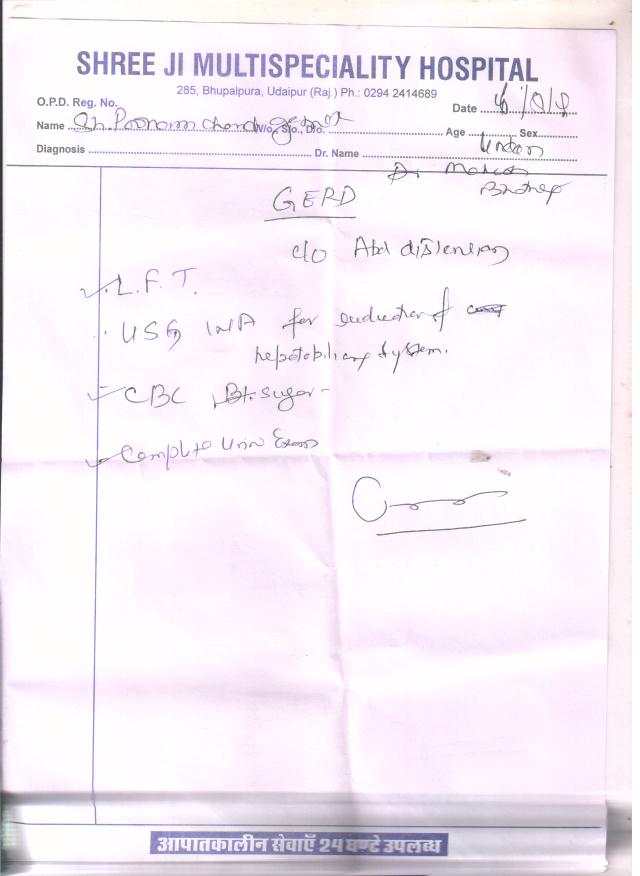 SHREE JI MULTISPECIALITY HOSPITAL
285, Bhupalpura, Udaipur (Raj.) Ph.: 0294 2414689
O.P.D. Reg. No.
Date
Name Sh. Poonam Chand W/o, S/o., D/o.
Age Sex
Diagnosis Dr. Name
Dr.
GERD
c/o Abd distension
L.F.T.
USG W/A for evaluation of
hepatobiliary system.
CBC , Bl. sugar
Complete Urin Exam
आपातकालीन सेवाएँ 24 घण्टे उपलब्ध